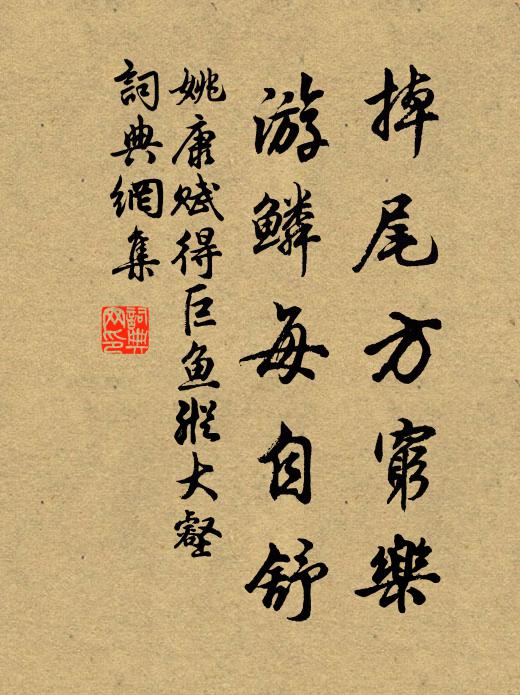 掉尾方窮樂
游鱗每自舒
姚康赋得巨鱼縱大壑
詞典網集
詞典网印